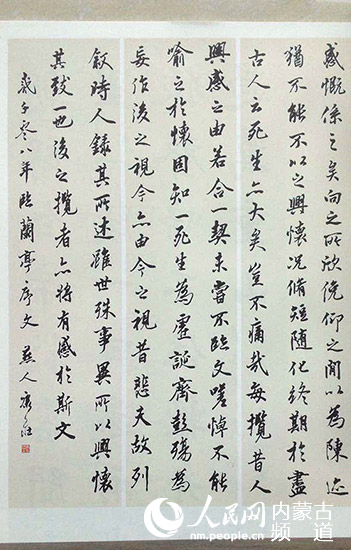 感慨係之矣向之所欣俛仰之間以為陳迹
猶不能不以之興懷況脩短隨化終期於盡
古人云死生亦大矣豈不痛哉每攬昔人
興感之由若合一契未嘗不臨文嗟悼不能
喻之於懷固知一死生為虛誕齊彭殤為
妄作後之視今亦由今之視昔悲夫故列
敘時人錄其所述雖世殊事異所以興懷
其致一也後之攬者亦將有感於斯文
歲于零八年臨蘭亭序文 燕人
人民网 内蒙古
nm.people.com.cn 频道